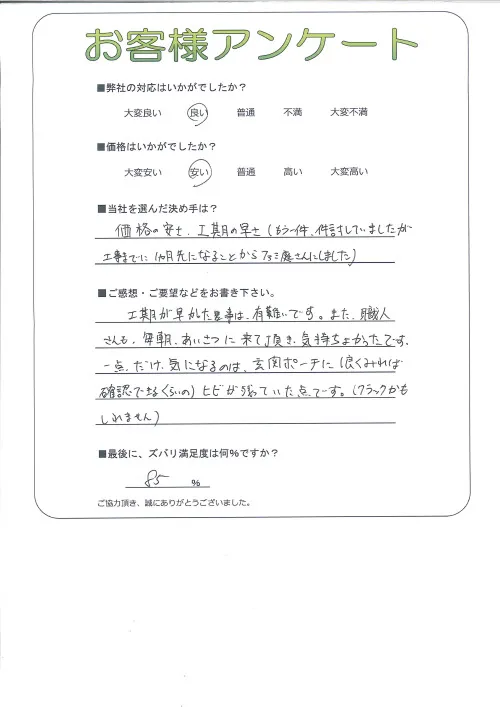 お客様アンケート
■弊社の対応はいかがでしたか？
大変良い 良い 普通 不満 大変不満
■価格はいかがでしたか？
大変安い 安い 普通 高い 大変高い
■当社を選んだ決め手は？
価格の安さ、工期の早さ（もう一件、件討していましたが
工事までに1ヵ月先になることから 庭さんにしました）
■ご感想・ご要望などをお書き下さい。
工期が早かった事は、有難いです。また、職人
さんも、毎朝、あいさつに来て頂き、気持ちよかったです、
一点、だけ、気になるのは、玄関ポーチに（良くみれば
確認できるくらいの）ヒビが残っていた点です。（クラックかも
しれません）
■最後に、ズバリ満足度は何%ですか？
85 %
ご協力頂き、誠にありがとうございました。